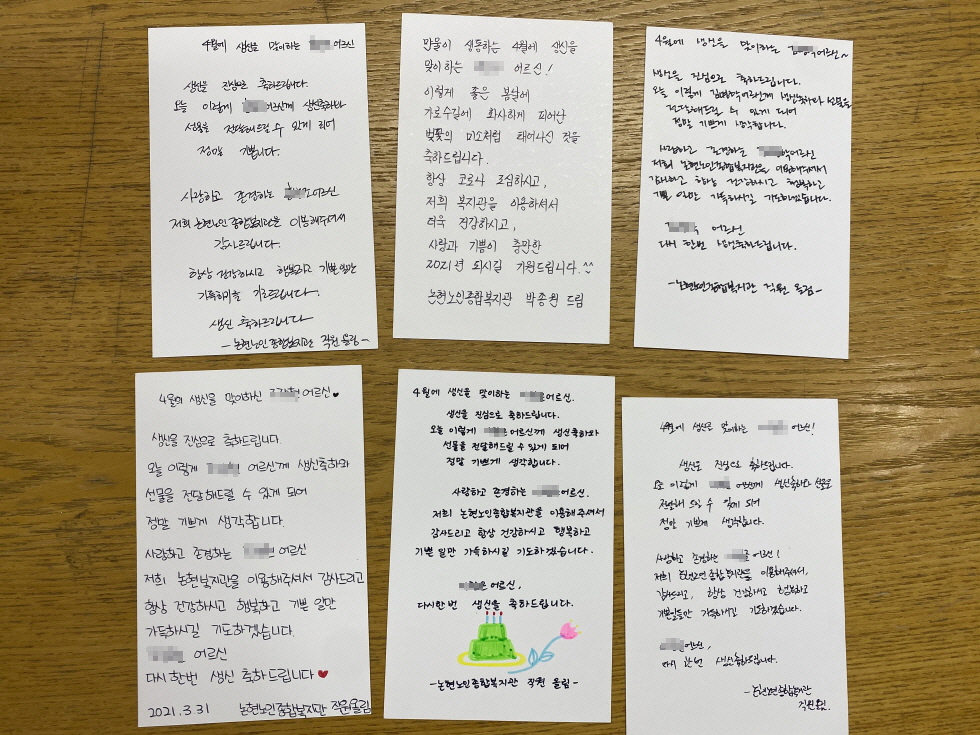 4월에 생신을 맞이하는 어르신
생신을 진심으로 축하드립니다.
오늘 이렇게 어르신께 생신축하와
선물을 전달해드릴 수 있게 되어
정말 기쁩니다.
사랑하고 존경하는 어르신
저희 논현노인종합복지관을 이용해주셔서
감사드립니다.
항상 건강하시고 행복하고 기쁜 일만
가득하기를 기도드립니다.
생신 축하드립니다
- 논현노인종합복지관 직원 올림 -
만물이 생동하는 4월에 생신을
맞이하는 어르신!
이렇게 좋은 봄날에
가로수길에 화사하게 피어난
벚꽃의 미소처럼 태어나신 것을
축하드립니다.
항상 코로나 조심하시고,
저희 복지관을 이용하셔서
더욱 건강하시고,
사랑과 기쁨이 충만한
2021년 되시길 기원드립니다.^^
논현노인종합복지관 박종원 드림
4월에 생신을 맞이하는 어르신~
생신을 진심으로 축하드립니다.
오늘 이렇게 어르신께 생신축하와 선물을
전달해드릴 수 있게 되어
정말 기쁘게 생각합니다.
사랑하고 존경하는 어르신
저희 논현노인종합복지관을 이용해주셔서
감사하고 항상 건강하시고 행복하고
기쁜 일만 가득하시길 기도하겠습니다.
어르신
다시 한번 생신축하드립니다.
- 논현노인종합복지관 직원 올림 -
4월의 생신을 맞이하신 어르신♥
생신을 진심으로 축하드립니다.
오늘 이렇게 어르신께 생신축하와
선물을 전달해드릴 수 있게 되어
정말 기쁘게 생각합니다.
사랑하고 존경하는 어르신
저희 논현복지관을 이용해주셔서 감사드리고
항상 건강하시고 행복하고 기쁜 일만
가득하시길 기도하겠습니다.
어르신
다시 한번 생신 축하드립니다♥
2021.3.31 논현노인종합복지관 직원올림
4월에 생신을 맞이하는 어르신.
생신을 진심으로 축하드립니다.
오늘 이렇게 어르신께 생신축하와
선물을 전달해드릴 수 있게 되어
정말 기쁘게 생각합니다.
사랑하고 존경하는 어르신.
저희 논현노인종합복지관을 이용해주셔서
감사드리고 항상 건강하시고 행복하고
기쁜 일만 가득하시길 기도하겠습니다.
어르신,
다시한번 생신을 축하드립니다.
- 논현노인종합복지관 직원 올림 -
4월에 생신을 맞이하는 어르신!
생신을 진심으로 축하드립니다.
오늘 이렇게 어르신께 생신축하와 선물을
전달해 드릴 수 있게 되어
정말 기쁘게 생각합니다.
사랑하고 존경하는 어르신!
저희 논현노인종합복지관을 이용해주셔서,
감사드리고, 항상 건강하시고 행복하고
기쁜일들만 가득하시길 기도하겠습니다.
어르신,
다시 한번 생신축하드립니다.
- 논현노인종합복지관
직원올림.